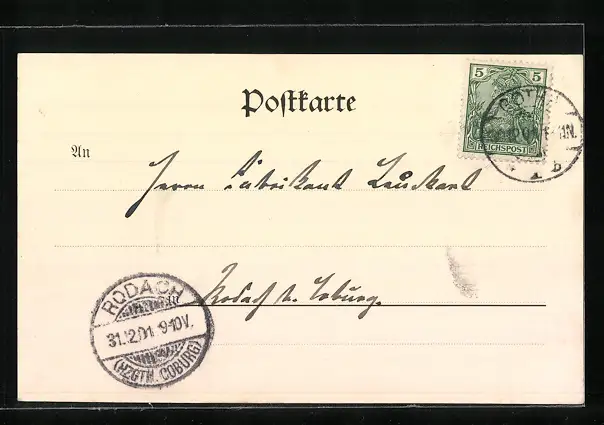 Postkarte
5 5
REICHSPOST
GOTHA
An
Herrn Fabrikant
Rodach b. Coburg.
in
RODACH
31.12.01. 9-10V.
(HZGTH. COBURG)